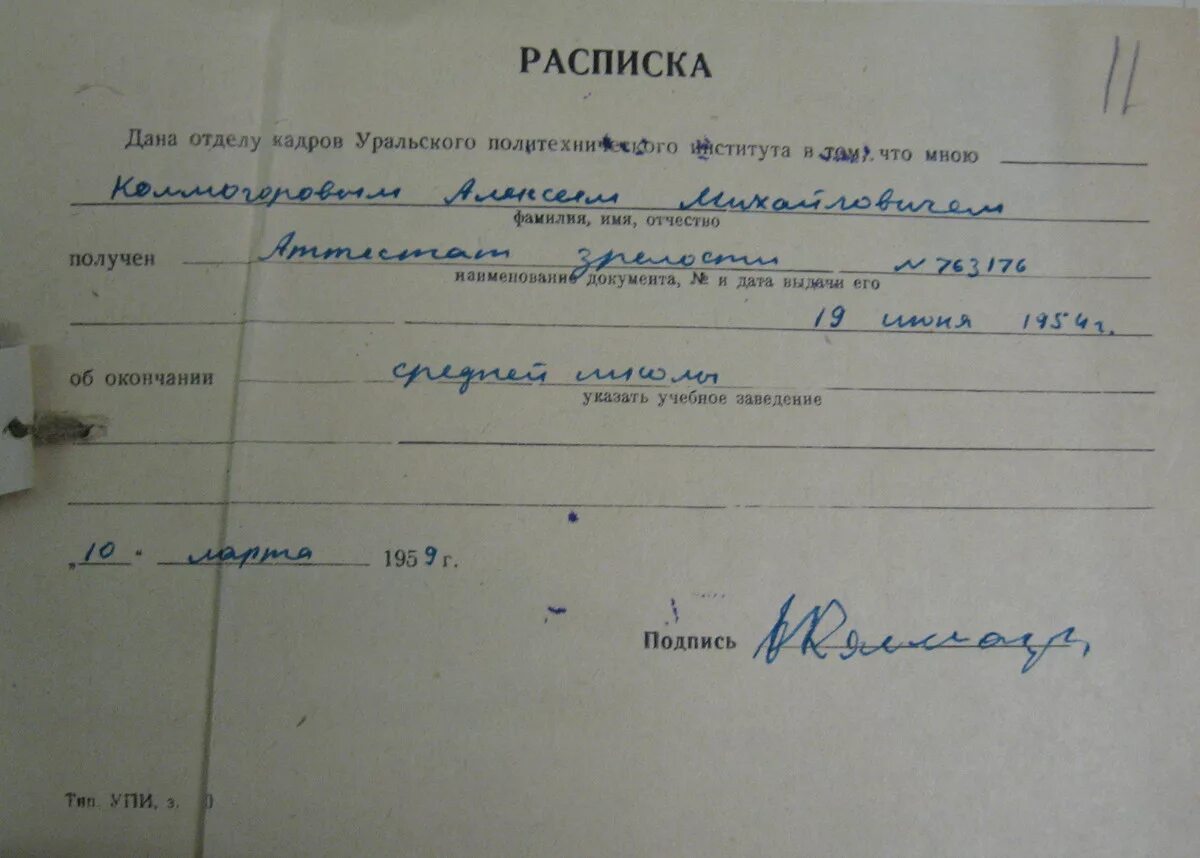 11
РАСПИСКА
Дана отделу кадров Уральского политехнического института в том, что мною
Коммогоровым Алексеем Михайловичем
фамилия, имя, отчество
получен Аттестат зрелости № 763176
наименование документа, № и дата выдачи его
19 июня 1954 г.
об окончании средней школы
указать учебное заведение
„10" марта 1959 г.
Подпись
Тип. УПИ, з.